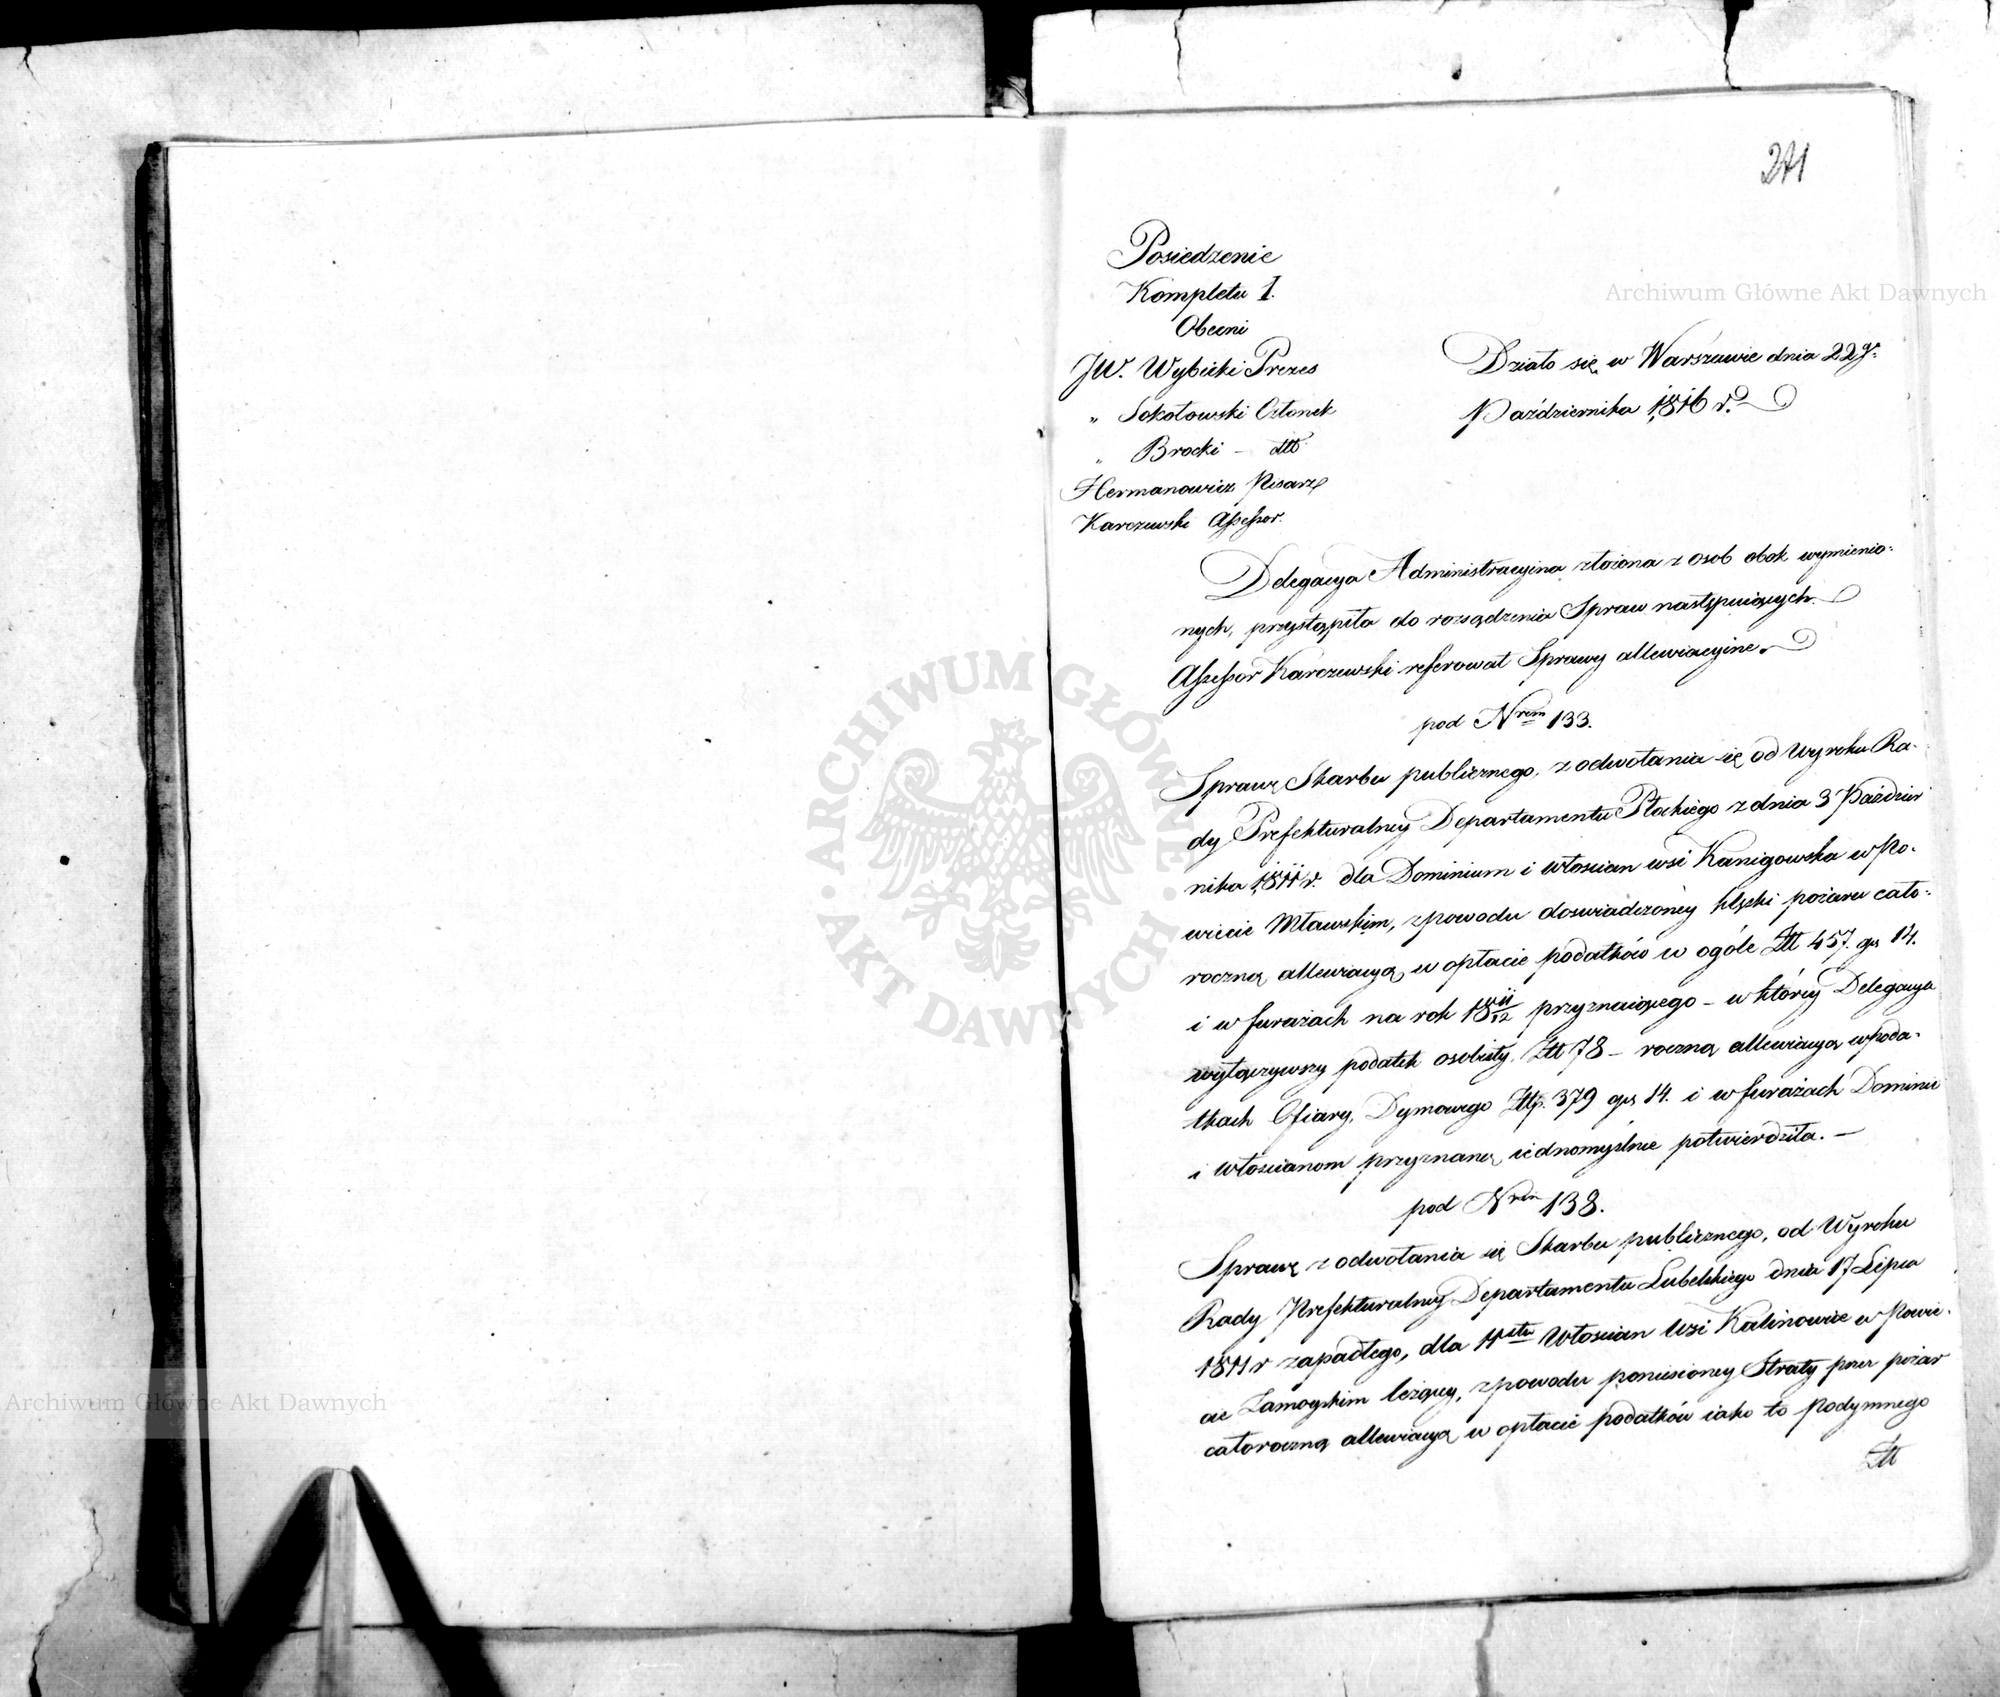 271
Posiedzenie
Kompletu I.
Obecni
JW. Wybicki Prezes
" Sokołowski Członek
" Brocki – dtto
Hermanowicz Pisarz
Karczewski Assessor.
Działo się w Warszawie dnia 22go
Października 1816 r.
Delegacya Administracyina złożona z osob obok wymienio-
nych, przystąpiła do rozsądzenia Spraw następuiących.
Assessor Karczewski referował Sprawy allewiacyine.
pod Nrem 133.
Sprawę Skarbu publicznego, z odwołania się od Wyroku Ra-
dy Prefekturalney Departamentu Płockiego z dnia 3 Paździer
nika 1811 r. dla Dominium i włoscian wsi Kanigowska w Po-
wiecie Mławskim, z powodu doswiadczoney klęski pożaru cało-
roczną allewiacyą w opłacie podatków w ogóle Złt 457. gr 14.
i w furażach na rok 1811/12 przyznaiącego – w którey Delegacya
wyłączywszy podatek osobisty Złt 78 – roczną allewiacyą w poda-
tkach Ofiary, Dymowego Złtp. 379 gr 14. i w furażach Dominii
i włoscianom przyznaną iednomyślnie potwierdziła. –
pod Nrem 138.
Sprawę z odwołania się Skarbu publicznego, od Wyroku
Rady Prefekturalney Departamentu Lubelskiego dnia 17 Lipca
1811 r zapadłego, dla 11stu Włoscian Wsi Kalinowice w Powie-
cie Zamoyskim leżącey, z powodu poniesioney Straty przez pożar
całoroczną allewiacyą w opłacie podatków iako to Podymnego
Złt
Archiwum Główne Akt Dawnych
ARCHIWUM GŁÓWNE · AKT DAWNYCH ·
Archiwum Główne Akt Dawnych